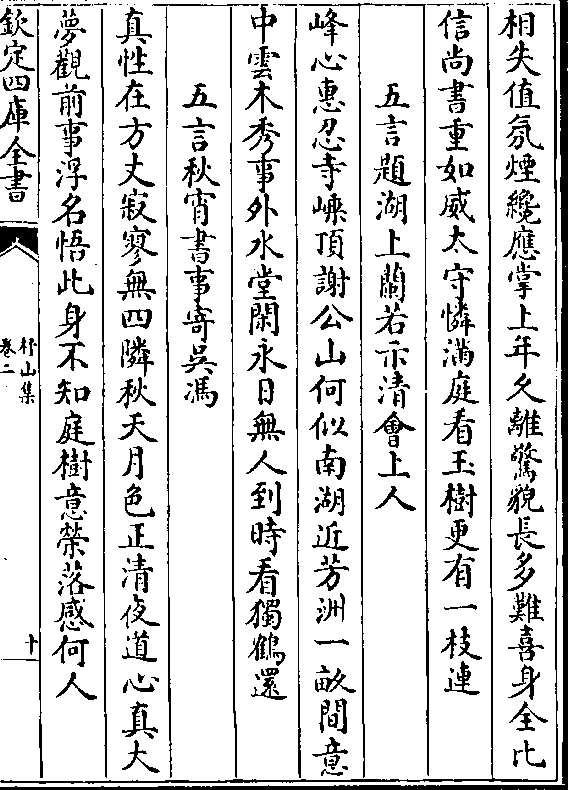 相失值氛煙纔應掌上年久離驚貌長多難喜身全比
信尚書重如威太守憐滿庭看玉樹更有一枝連
五言題湖上蘭若示清會上人
峰心惠忍寺嵊頂謝公山何似南湖近芳洲一畝間意
中雲木秀事外水堂閑永日無人到時看獨鶴還
五言秋宵書事寄吳馮
真性在方丈寂寥無四隣秋天月色正清夜道心真大
夢觀前事浮名悟此身不知庭樹意榮落感何人
欽定四庫全書
杼山集
卷二
十